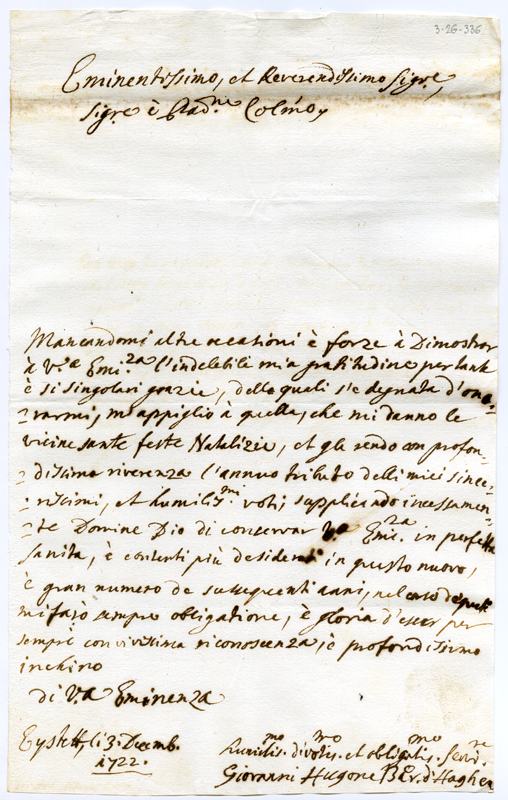 3-26-336
Eminentissimo, et Reverendissimo Sig.re,
Sig.re è Padne Colmo,
Mancandomi altre occationi è forze à Dimostrar
à V.a Emi.za l'indelebile mia gratitudine per tante
è si singolari grazie, delle quali s'è degnata d'ono-
-rarmi, m'appiglio à quelle, che mi danno le
vicine sante feste Natalizie, et gli rendo con profon-
-dissima riverenza l'annuo tributo delli miei since-
-rissimi, et humilis.mi voti, supplicando incessamen-
-te Domine Dio di conservar V.a Emi.za in perfetta
sanita, è contenti più desiderati in questo nuovo,
è gran numero de susseguenti anni, nel corso de quali
mi farò sempre obligatione, è gloria d'esser per
sempre con vivissima riconoscenza, è profondissimo
inchino
di V.a Eminenza
Eystett, li 3. Decemb.
1722.
humilis.mo divotis.mo et obligatis.mo Serv.re
Giovanni Hugone Bar. d'Haghen